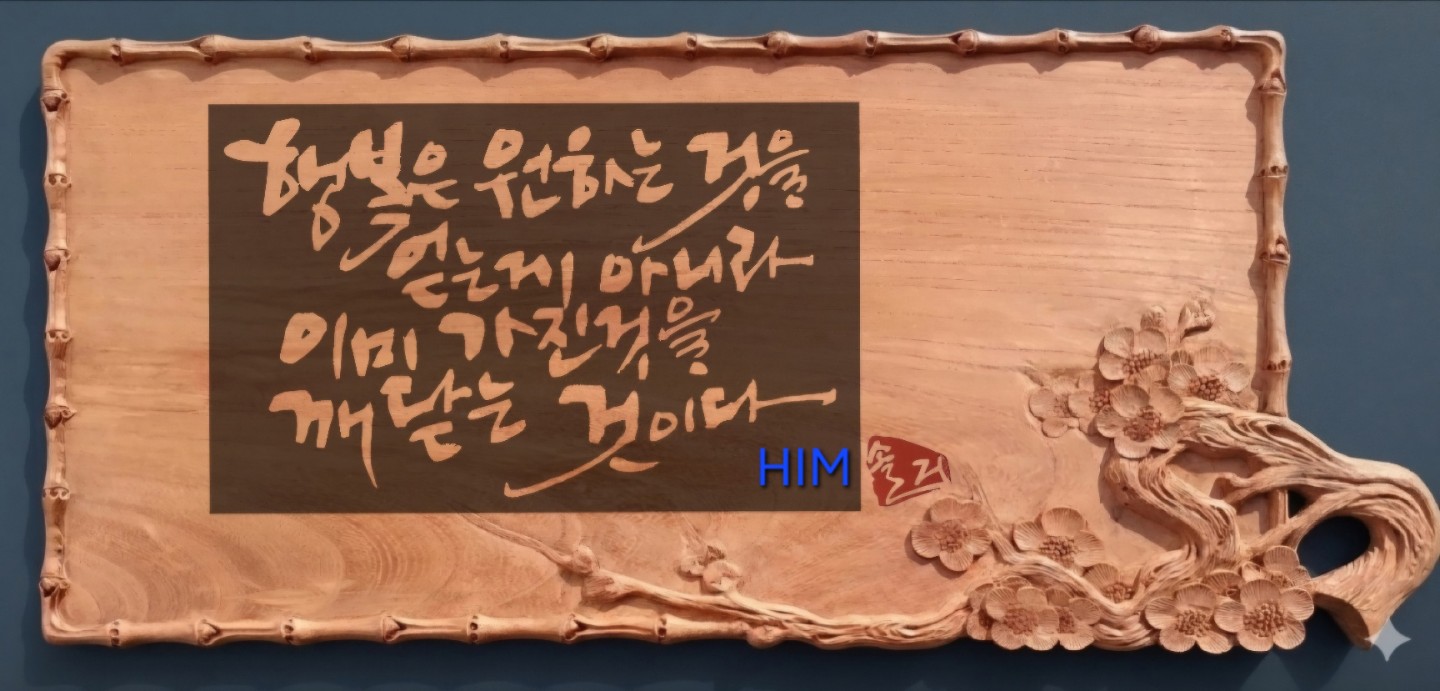 행복은 원하는 것을
얻는게 아니라
이미 가진것을
깨닫는 것이다
HIM
솔거